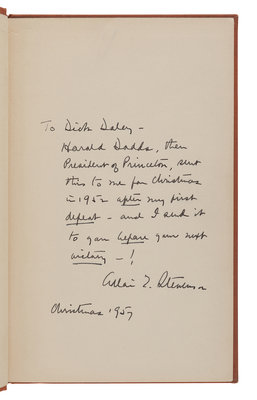 To Dick Daley —
Harold Dodds, then
President of Princeton, sent
this to me for Christmas
in 1952 after my first
defeat — and I send it
to you before your next
victory — !
Adlai E. Stevenson
Christmas 1957